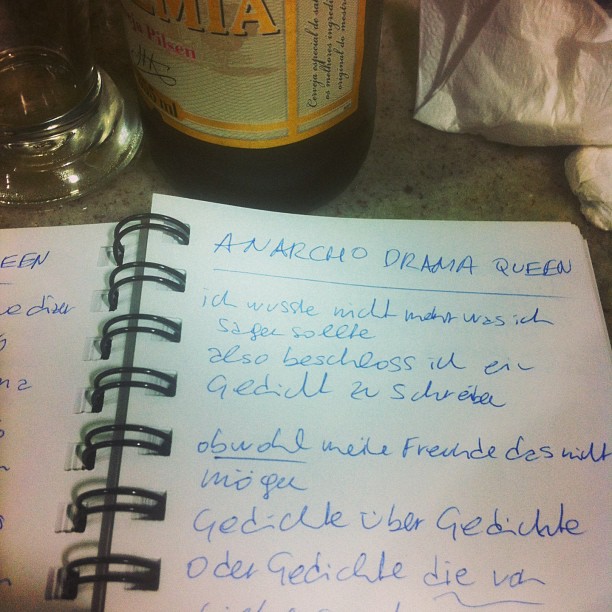 EMIA
Pilsen
ml
Cerveja especial de
os melhores ingredi
original do mestre
EEN
ANARCHO DRAMA QUEEN
ich wusste nicht mehr was ich
sagen sollte
also beschloss ich ein
Gedicht zu schreiben
obwohl meine Freunde das nicht
mögen
Gedichte über Gedichte
Oder Gedichte die von